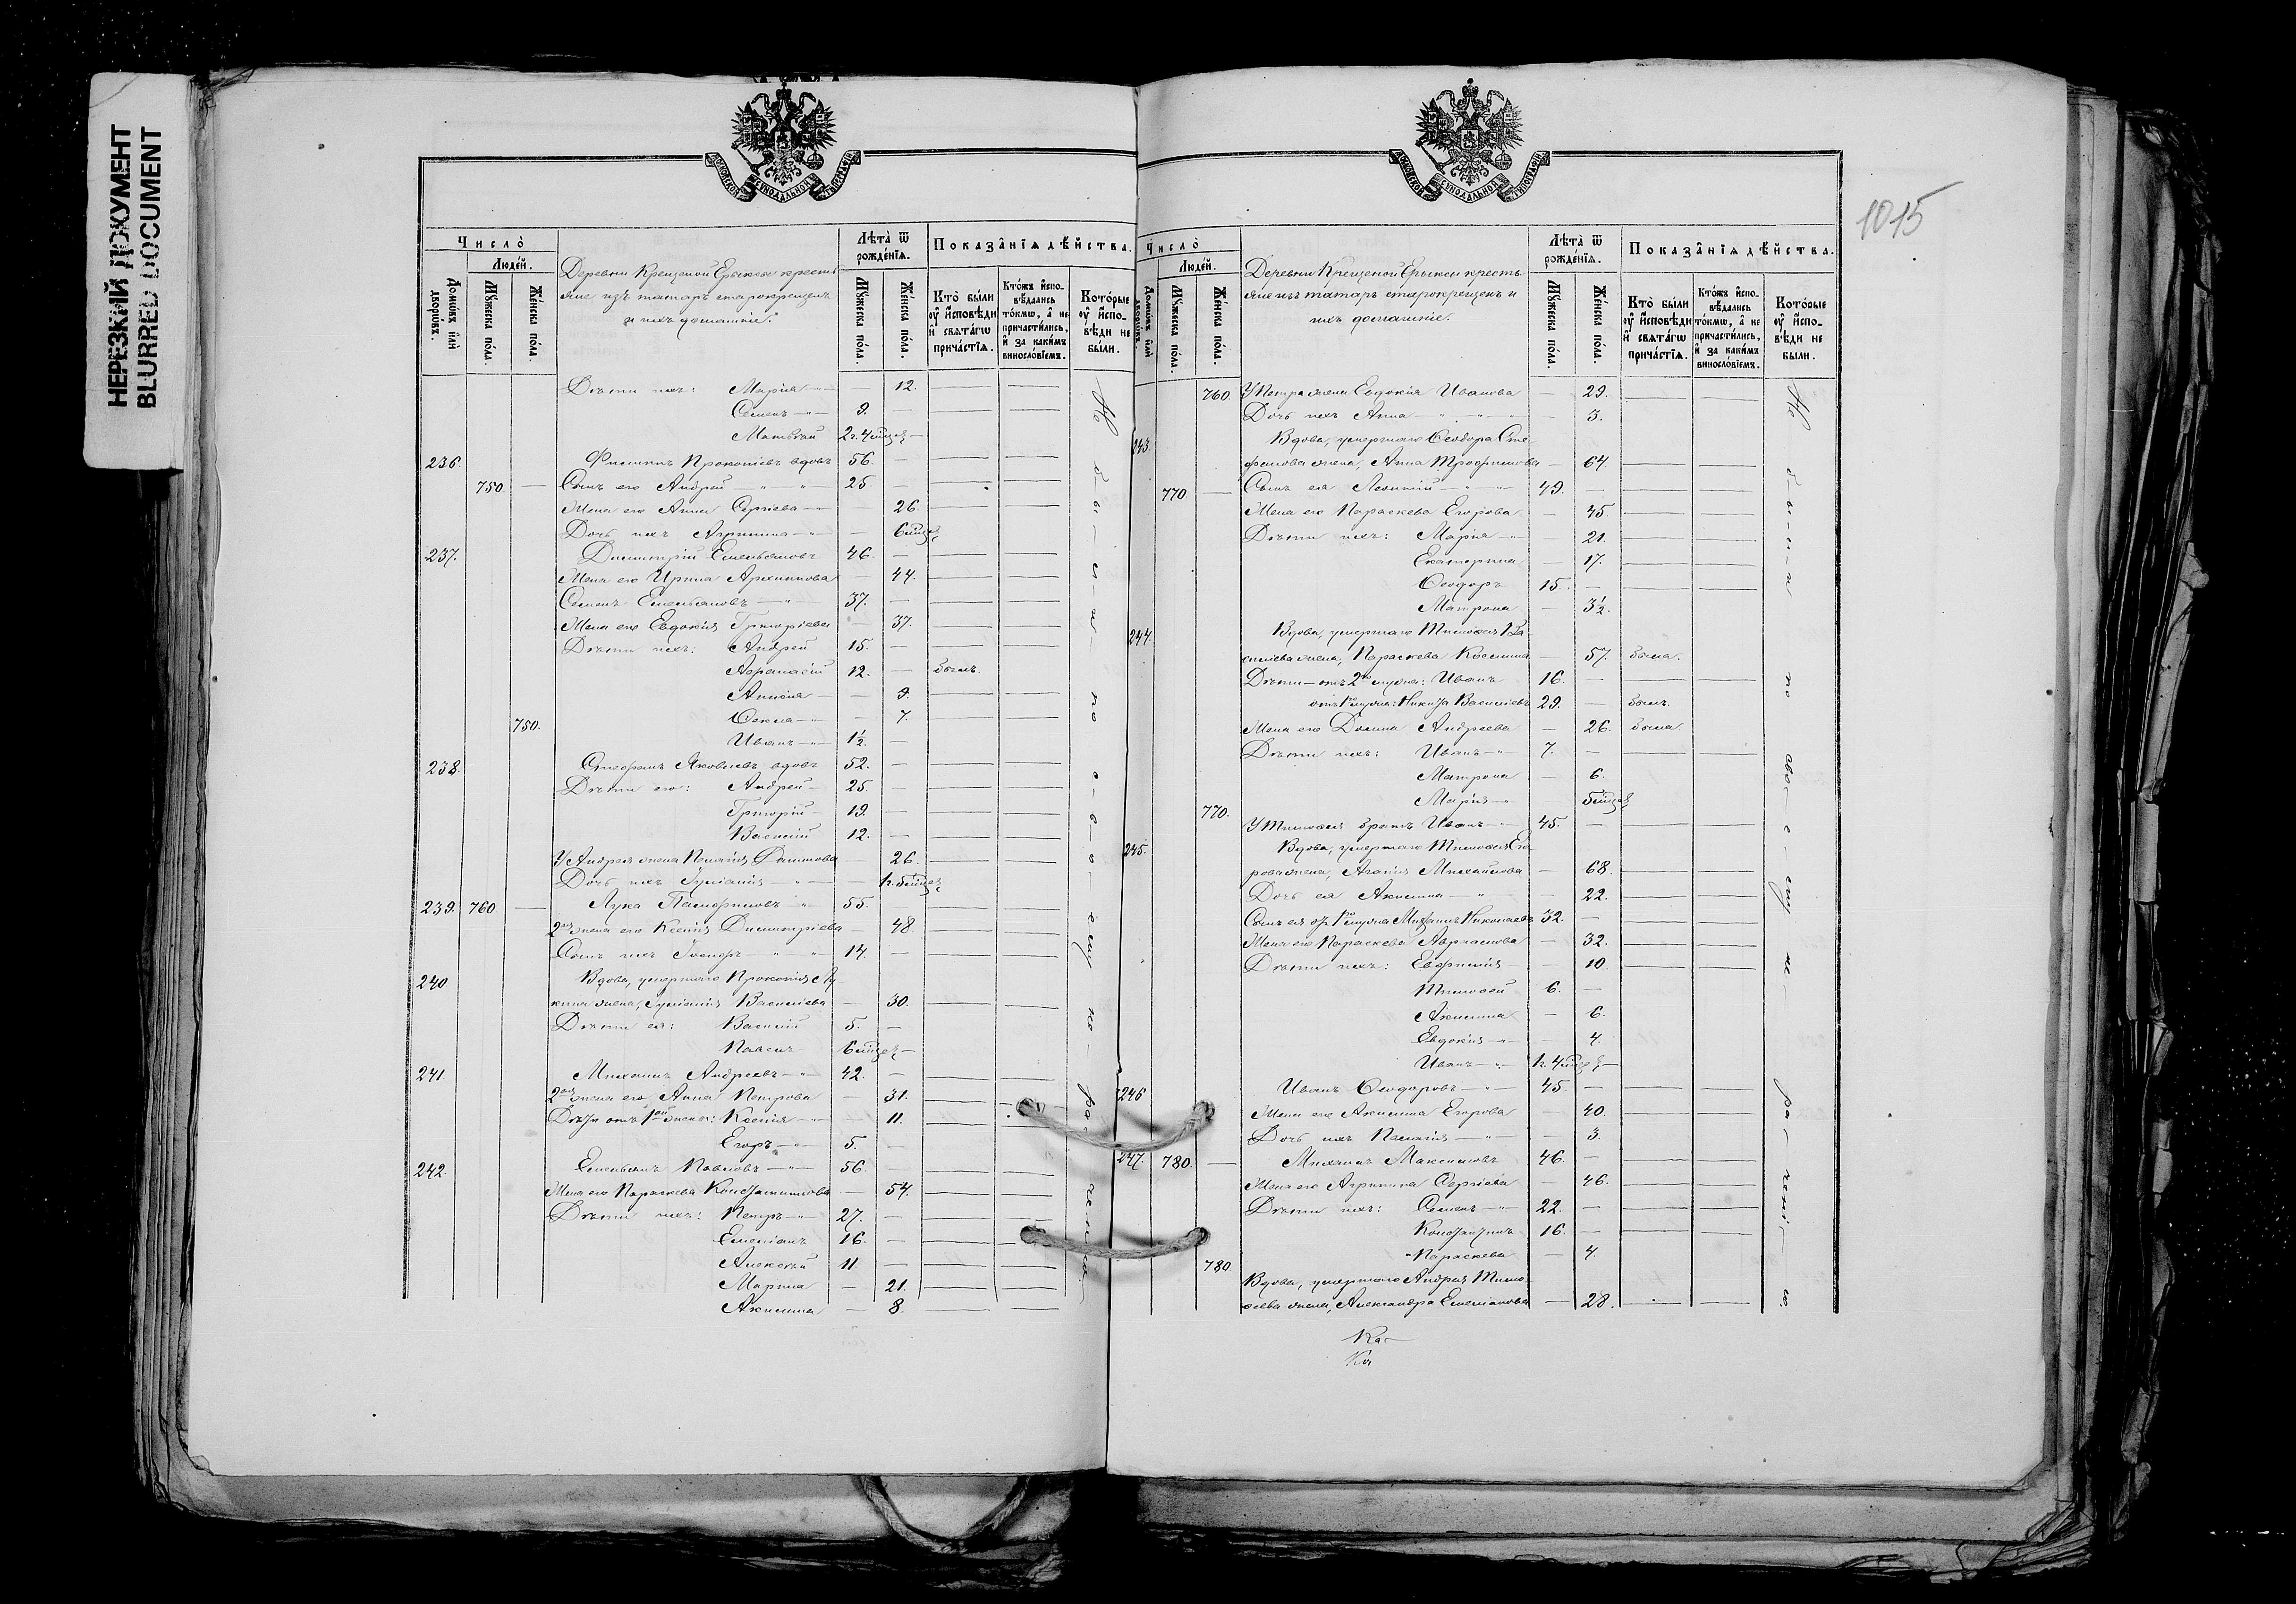 НЕРЕЗКИЙ ДОКУМЕНТ
BLURRED DOCUMENT
МОСКОВСКОЙ СѴНОДАЛЬНОЙ ТИПОГРАФІИ
Число̀
Людей.
Домѡвъ или дворѡвъ.
Мꙋжеска пола.
Женска пола.
Деревни Крещеной Ерыксы кресть
яне изъ татаръ старокрещенъ
и ихъ домашніе.
Лѣта ѿ рожденїѧ.
Мꙋжеска пола.
Женска пола.
Показанїѧ дѣйства.
Кто были оу исповѣди и свѧтагѡ причастїѧ.
Ктожъ исповѣдались токмѡ, а не причастились, и за какимъ винословїемъ.
Которые оу исповѣди не были.
Дѣти ихъ: Марія — 12.
Семенъ 9. —
Матвѣй 2 г. 4 мѣсяц. —
236. Филиппъ Прокопіевъ вдовъ 56. —
750. — Сынъ его Андрей 25. —
Жена его Анна Сергіева — 26.
Дочь ихъ Агрипина — 6 мѣсяц.
237. Димитрій Емельяновъ 46. —
Жена его Ирина Архипова — 44.
Семенъ Емельяновъ 37. —
Жена его Евдокія Григоріева — 37.
Дѣти ихъ: Андрей 15. —
Аѳанасій 12. — былъ.
Анисія — 9.
Ѳекла — 7.
750. Иванъ 1½. —
238. Стефанъ Яковлевъ вдовъ 52. —
Дѣти его: Андрей 25. —
Григорій 19. —
Василій 12. —
У Андрея жена Пелагія Данилова — 26.
Дочь ихъ Іуліанія — 1 г. 5 мѣсяц.
239. 760 — Лука Памфиловъ 55.
2ая жена его Ксенія Димитріева — 48.
Сынъ ихъ 14. —
240 Вдова, умершаго Прокопія Лу
кина жена, Іуліанія Василіева — 30.
Дѣти ея: Василій 5. —
Павелъ 6 мѣсяц. —
241. Михаилъ Андреевъ 42. —
2ая жена его, Анна Петрова — 31.
Дѣти отъ 1ой жены: Ксенія — 11.
Егоръ 5. —
242. Емельянъ Павловъ 56. —
Жена его Параскева Константинова — 54.
Дѣти ихъ: Петръ 27. —
Емеліанъ 16. —
Алексѣй 11 —
Марина — 21.
Акилина — 8.
Не б-ы-л-и- по с-в-о-ему не-ра-ченію.
1015
МОСКОВСКОЙ СѴНОДАЛЬНОЙ ТИПОГРАФІИ
Число̀
Людей.
Домѡвъ или дворѡвъ.
Мꙋжеска пола.
Женска пола.
Деревни Крещеной Ерыксы кресть
яне изъ татаръ старокрещенъ и
ихъ домашніе.
Лѣта ѿ рожденїѧ.
Мꙋжеска пола.
Женска пола.
Показанїѧ дѣйства.
Кто были оу исповѣди и свѧтагѡ причастїѧ.
Ктожъ исповѣдались токмѡ, а не причастились, и за какимъ винословїемъ.
Которые оу исповѣди не были.
760. У Петра жена Евдокія Иванова — 29.
Дочь ихъ Анна — 3.
243. Вдова, умершаго Ѳеодора Сте
фанова жена, Анна Трофимова — 64.
770. — Сынъ ея Леонтій 49. —
Жена его Параскева Егорова — 45.
Дѣти ихъ: Марія — 21.
Екатерина — 17.
Ѳеодоръ 15. —
Матрона — 3½.
244. Вдова, умершаго Тимоѳея Ва
силіева жена, Параскева Космина — 57. была.
Дѣти — отъ 2го мужа: Иванъ 16. —
отъ 1го мужа: Никита Василіевъ 29. — былъ.
Жена его Домна Андреева — 26. была.
Дѣти ихъ: Иванъ 7. —
Матрона — 6.
Марія — 5 мѣсяц.
770. У Тимоѳея братъ Иванъ 45. —
245. Вдова, умершаго Тимоѳея Его
рова жена, Агаѳія Михайлова — 68.
Дочь ея Акилина — 22.
Сынъ ея отъ 1го мужа Михаилъ Николаевъ 32. —
Жена его Параскева Аврамова — 32.
Дѣти ихъ: Евфимія — 10.
Тимоѳей 6. —
Акилина — 6.
Евдокія — 4.
Иванъ 1 г. 4 мѣсяц. —
246 Иванъ Ѳеодоровъ 45 —
Жена его Акилина Егорова — 40.
Дочь ихъ Пелагія — 3.
247. 780. — Михаилъ Максимовъ 46. —
Жена его Агрипина Сергіева — 46.
Дѣти ихъ: Семенъ 22. —
Константинъ 16. —
780 Параскева — 4.
Вдова, умершаго Андрея Тимо
ѳеева жена, Александра Емеліанова — 28.
Не б-ы-л-и по сво-е-му не-ра-чені-ю.
Ка-
Ка